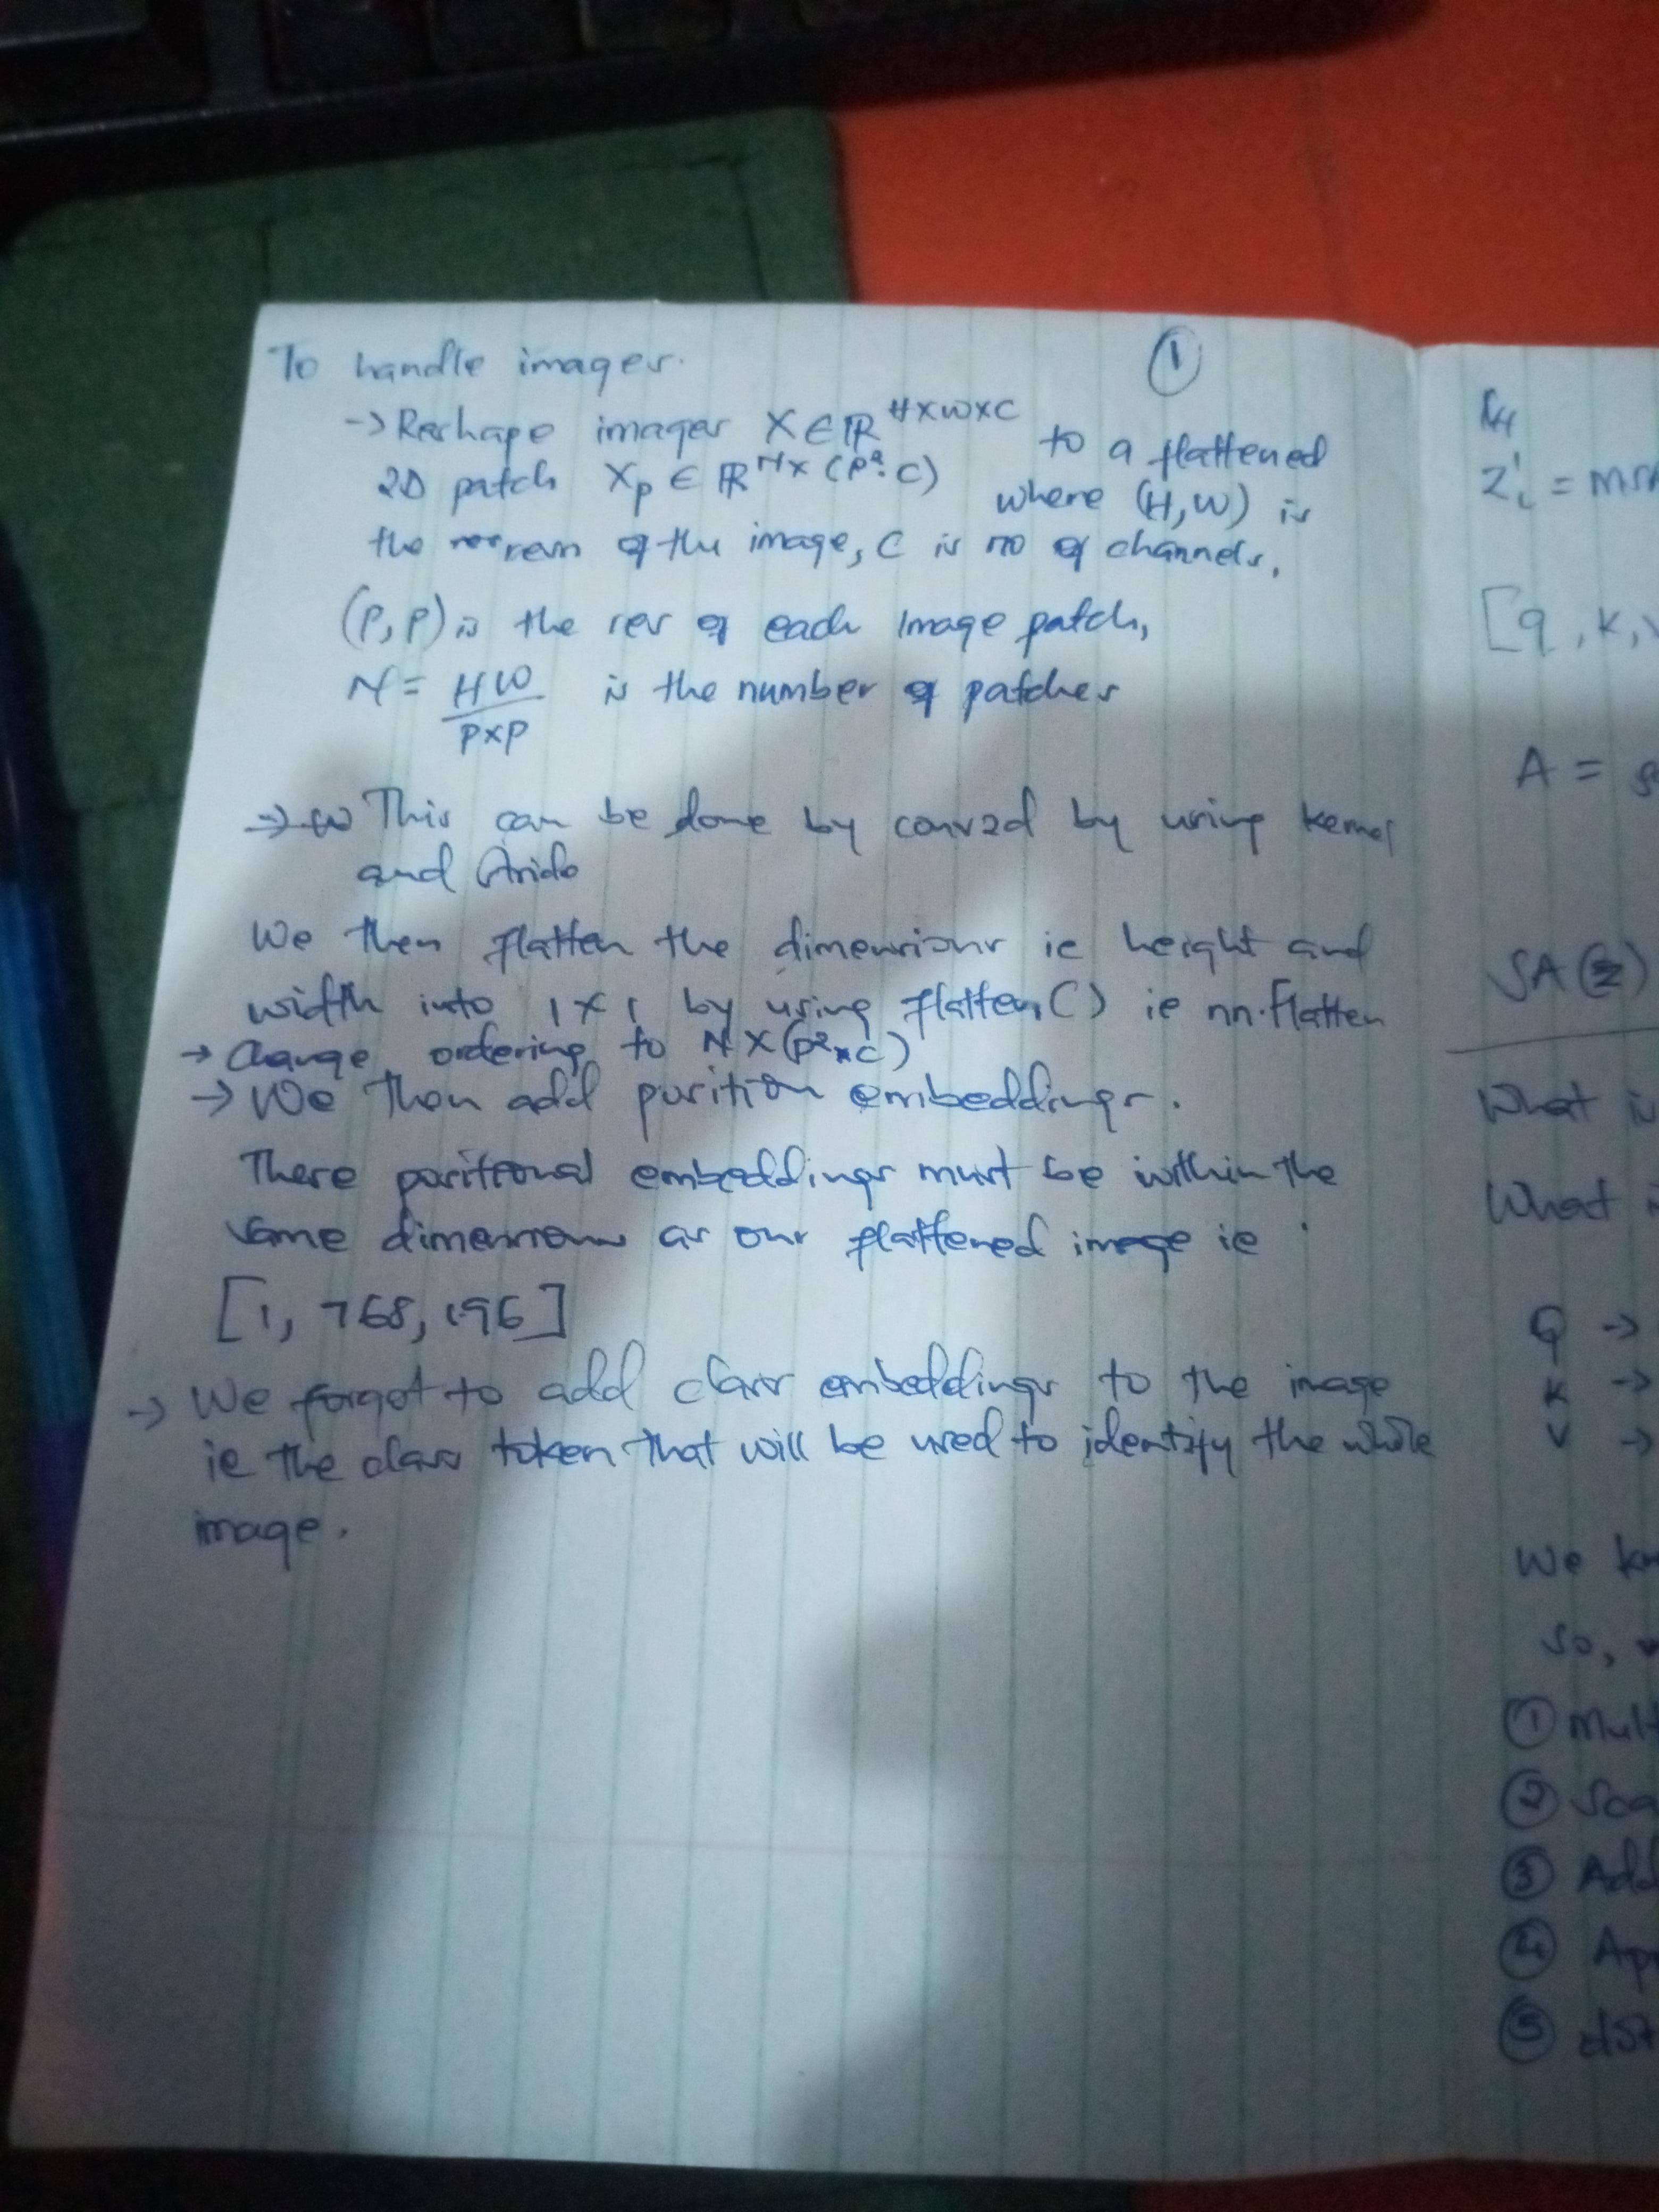 To handle images.
①
-> Reshape images X ∈ ℝ^H×W×C to a flattened
2D patch Xp ∈ ℝ^N×(P²·C) where (H,W) is
the resn of the image, C is no of channels,
(P,P) is the res of each image patch,
N = HW / P×P is the number of patches
-> This can be done by conv2d by using kernel
and stride
We then flatten the dimensions ie height and
width into 1 × 1 by using flatten() ie nn.Flatten
-> Change ordering to N × (P²×C)
-> We then add position embeddings.
These positional embeddings must be within the
same dimensions as our flattened image ie
[1, 768, 196]
-> We forgot to add class embeddings to the image
ie the class token that will be used to identify the whole
image.
[q, k,
A =
SA(z)
What is
What
Q ->
K ->
V ->
We
so,
①
②
③ Add
④
⑤